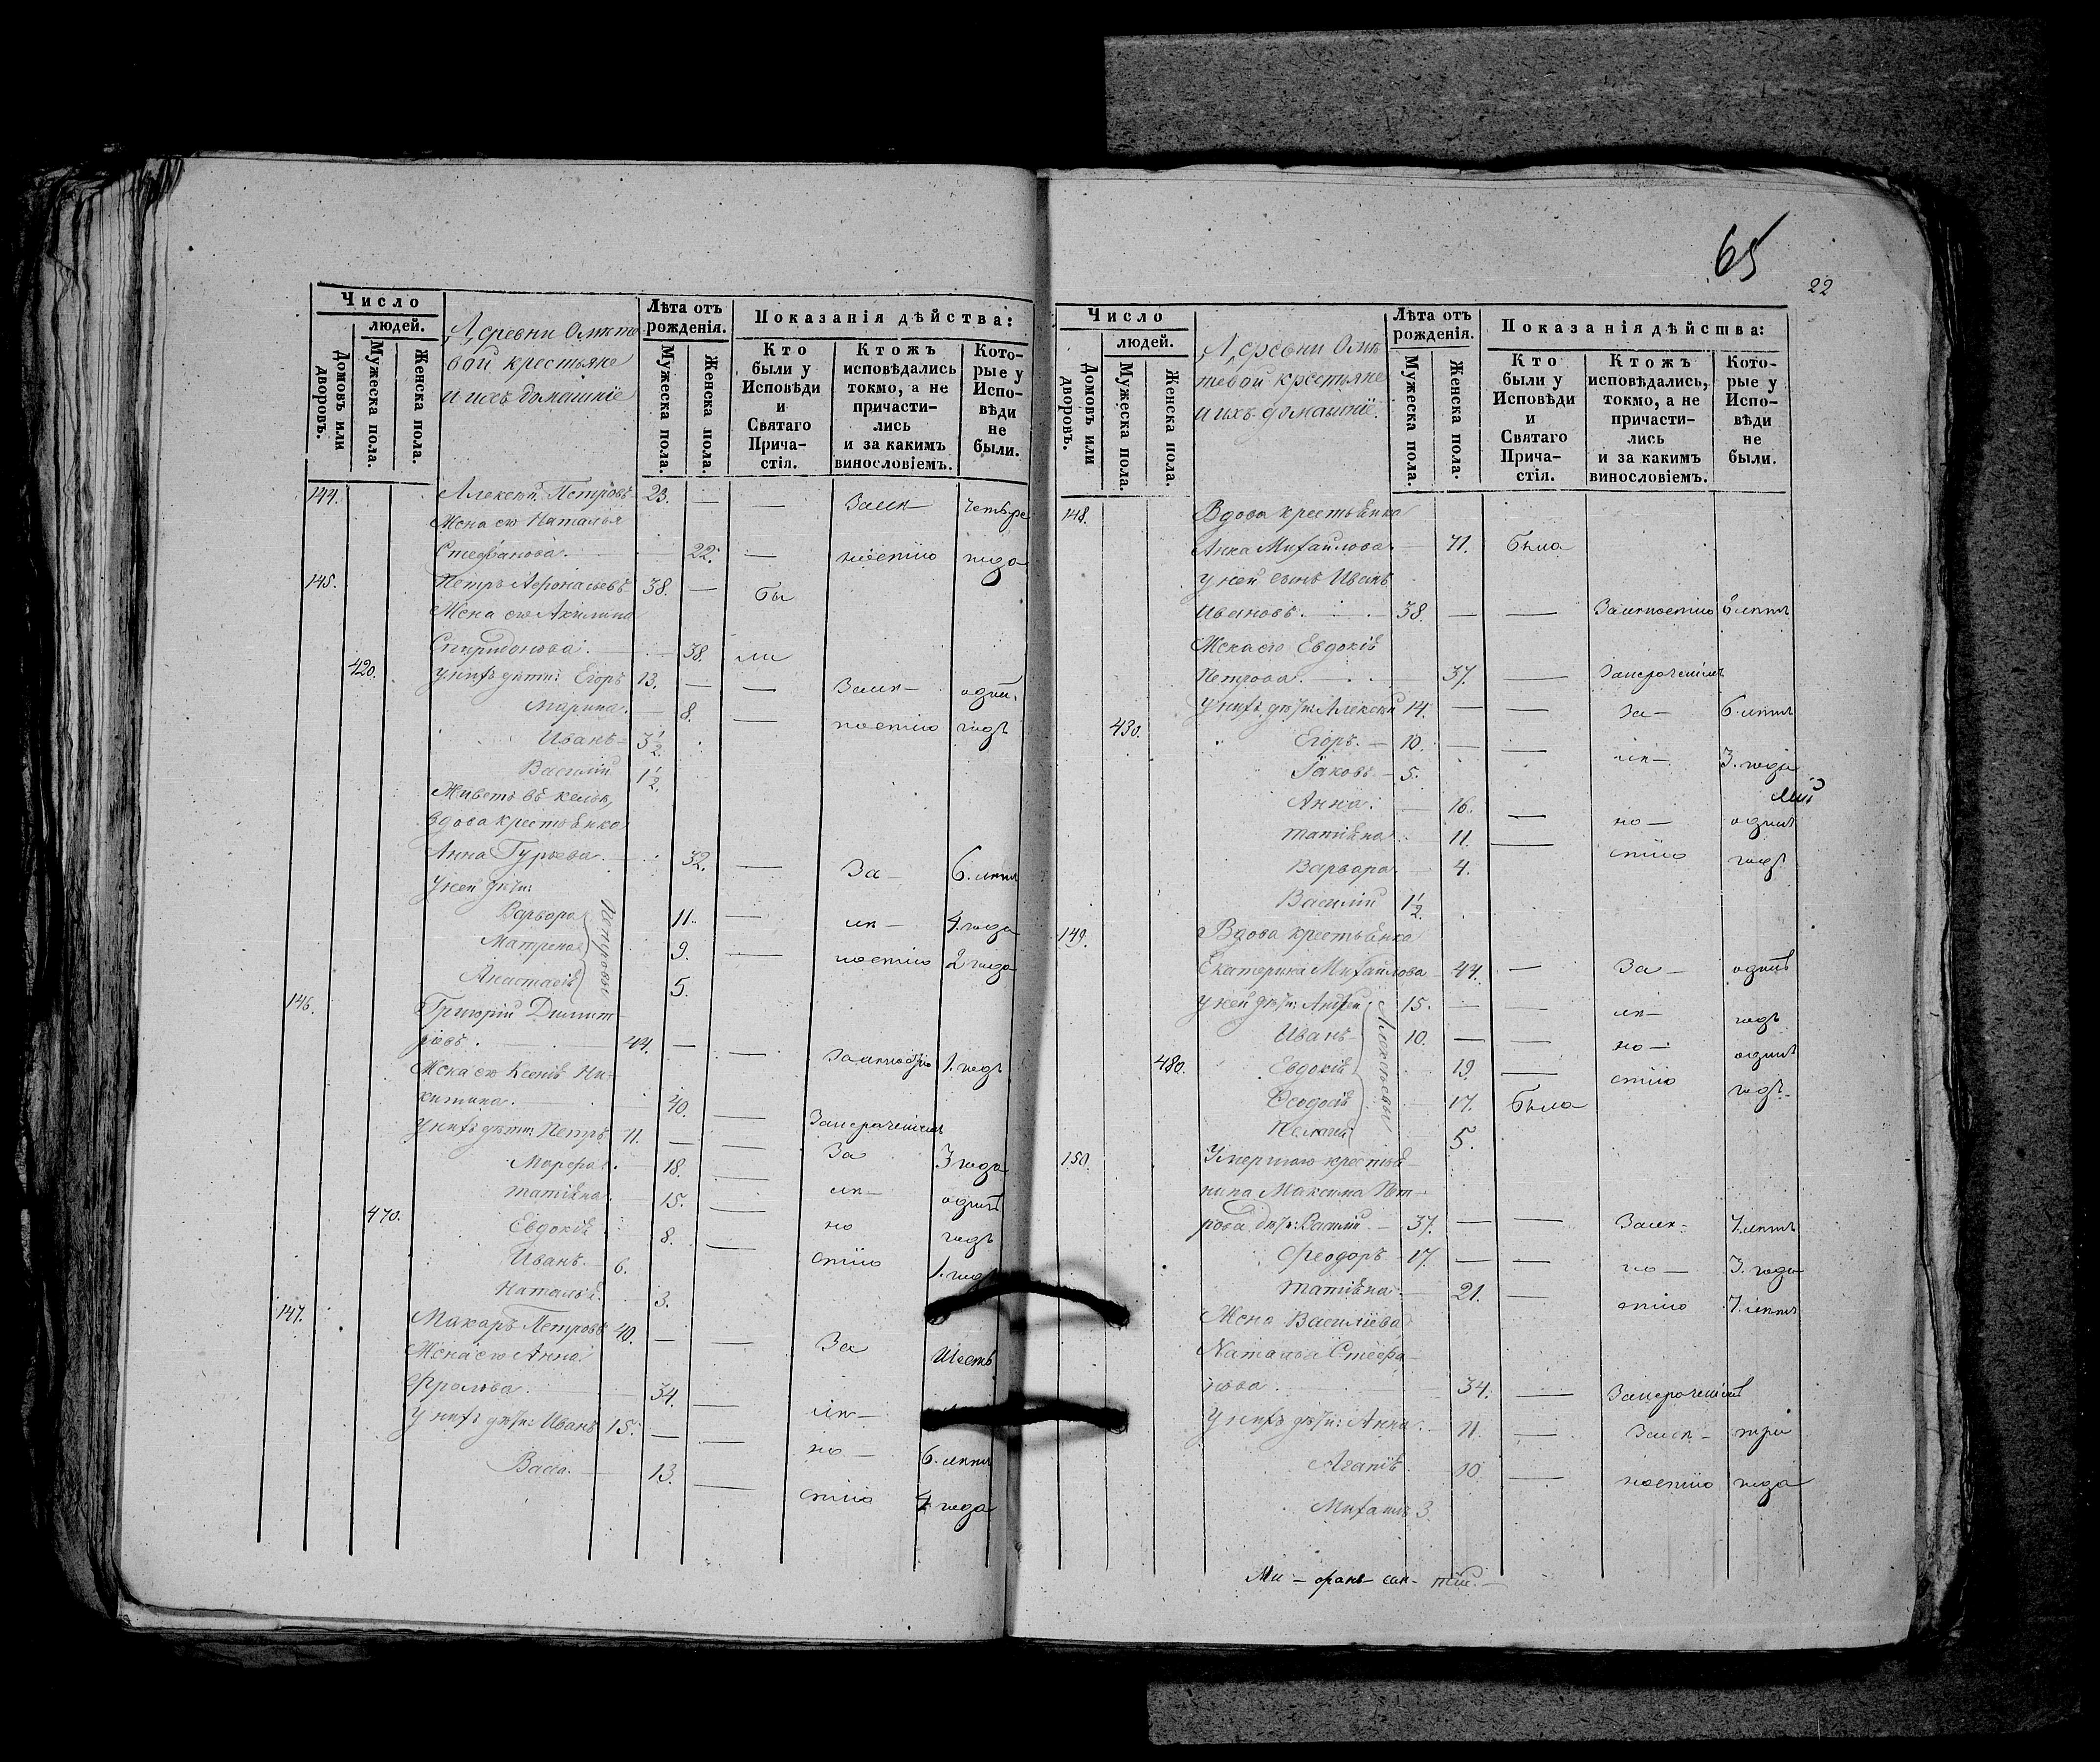 Число
людей.
Домовъ или дворовъ.
Мужеска пола.
Женска пола.
вой крестьяне
и ихъ домашніе
Лѣта отъ рожденія.
Мужеска пола.
Женска пола.
Показанія дѣйства:
Кто были у Исповѣди и Святаго Прича-стія.
Ктожъ исповѣдались токмо, а не причасти-лись и за какимъ винословіемъ.
Кото-рые у Испо-вѣди не были.
144. Алексѣй Петровъ 23. — — четыре
Жена его Наталья
Стефанова. 22. — ностію года
145. Петръ Афонасьевъ 38. — бы
Жена его Акилина
Спиридонова. 38. ли
420. У нихъ дѣти: Егоръ 13. — — одинъ
Марина. — 8. — ностію годъ
Иванъ 3 1/2.
Василій 1 1/2.
Живетъ въ кельѣ,
вдова крестьянка
Анна Гурьева. 32. — За- 6. лѣтъ
У ней дѣти:
Варвара 11. — 4. года
Матрена 9. — ностію 2 года
Анастасія 5.
Петровы
146. Григорій Димит
ріевъ. 44. — — 1. годъ
Жена его Ксенія Ни-
китина. 40. —
У нихъ дѣти: Петръ 11. — — За 3 года
Марфа. 18. — одинъ
Татіяна. 15. — но годъ
470. Евдокія 8. — стію 1. годъ
Иванъ. 6.
Наталья. 3.
147. Макаръ Петровъ 40. — — За шесть
Жена его Анна
Фролова. 34. —
У нихъ дѣти: Иванъ 15. — — но — 6. лѣтъ
Васса. 13. — стію 4 года
65
22
Число
людей.
Домовъ или дворовъ.
Мужеска пола.
Женска пола.
тевой крестьяне
и ихъ домашніе.
Лѣта отъ рожденія.
Мужеска пола.
Женска пола.
Показанія дѣйства:
Кто были у Исповѣди и Святаго Прича-стія.
Ктожъ исповѣдались, токмо, а не причасти-лись и за какимъ винословіемъ.
Кото-рые у Испо-вѣди не были.
148. Вдова крестьянка
Анна Михайлова. — 71. была
У ней сынъ Иванъ
Ивановъ. 38. — — 6 лѣтъ
Жена его Евдокія
Петрова. 37. —
У нихъ дѣти: Алексѣй 14. — — За — 6 лѣтъ
430. Егоръ. — 10. — — 3. года
Іаковъ. — 5.
Анна. 16. — но — одинъ
Татіяна. 11. — стію годъ
Варвара. 4.
Василій 1 1/2.
149. Вдова крестьянка
Екатерина Михайлова 44. — За — одинъ
У ней дѣти: Андрей 15. — — годъ
Иванъ 10. — — но — одинъ
480. Евдокія 19. — стію годъ.
Феодосія 17. была
Пелагія 5.
Алексѣевы
150. Умершаго крестья
нина Максима Пет-
рова дѣти: Василій — 37. — — 7. лѣтъ
Феодоръ 17. — — но — 3. года
Татіяна. 21. — стію 7. лѣтъ
Жена Василіева
Наталья Стефа-
нова. 34. —
У нихъ дѣти: Анна. 11. — три
Агапія. 10. — ностію года
Михаилъ 3.